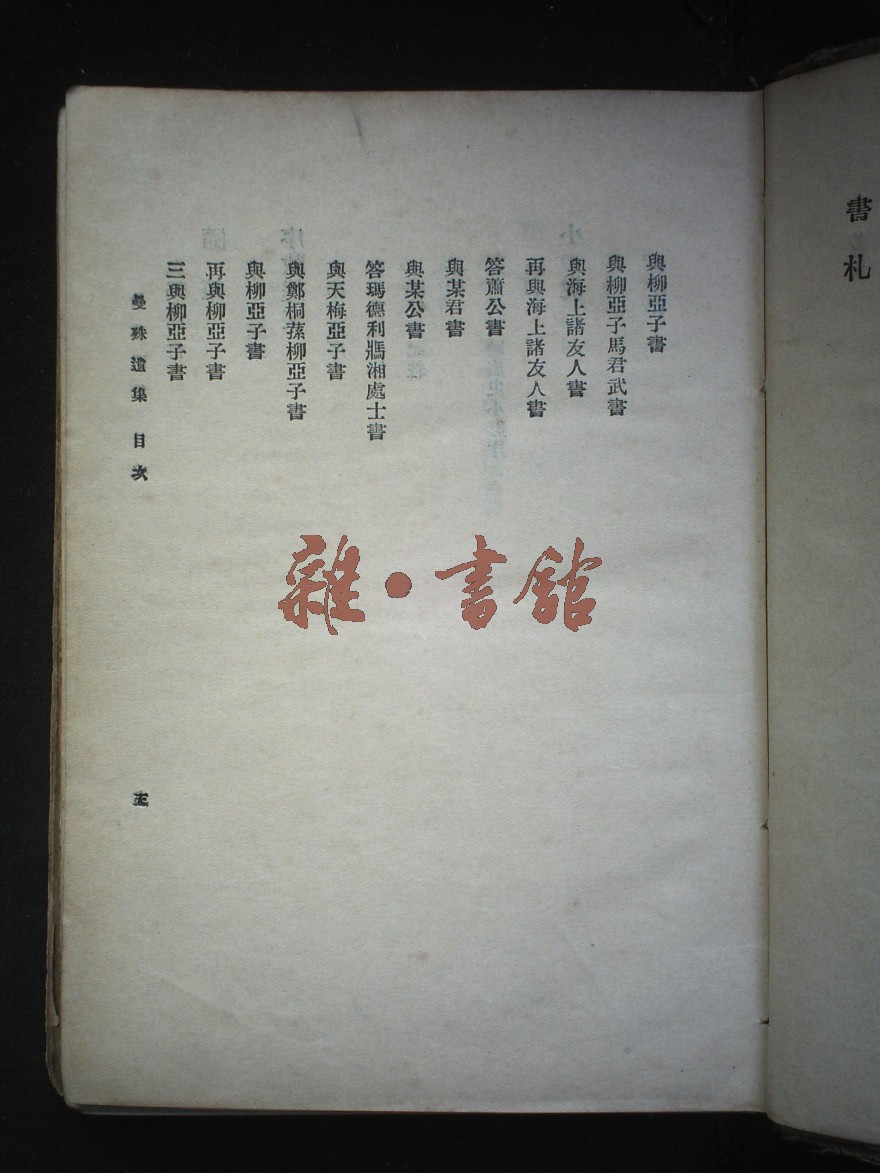 書札
與柳亞子書
與柳亞子馬君武書
與海上諸友人書
再與海上諸友人書
答蕭公書
與某君書
與某公書
答瑪德利馮湘處士書
與天梅亞子書
與鄭桐蓀柳亞子書
與柳亞子書
再與柳亞子書
三與柳亞子書
曼殊遺集 目次
雜·書館